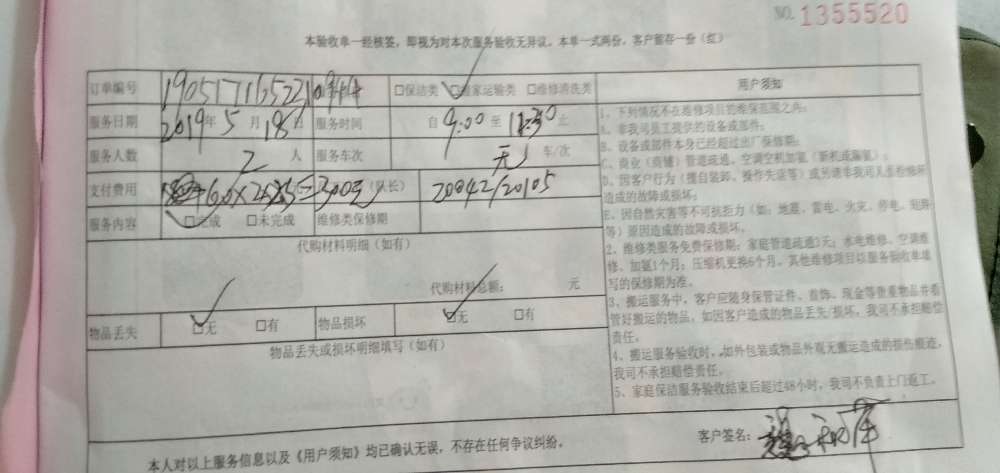 NO. 1355520
本验收单一经核签，即视为对本次服务验收无异议。本单一式两份，客户留存一份（红）
订单编号 □保洁类 □搬家运输类 □维修清洗类 用户须知
服务日期 2019年5月18日 服务时间 自9:00至11:30止
服务人数 2人 服务车次 无 车/次
支付费用 300元（队长） 20042/20105
服务内容 □完成 □未完成 维修类保修期
代购材料明细（如有）
代购材料总额： 元
物品丢失 □无 □有 物品损坏 □无 □有
物品丢失或损坏明细填写（如有）
1、下列情况不在维修项目的维保范围之内：
A、非我司员工提供的设备或部件；
B、设备或部件本身已经超过出厂保修期；
C、商业（商铺）管道疏通、空调空机加氟（新机或漏氟）；
D、因客户行为（擅自装卸、操作失误等）或另请非我司人员检修所
造成的故障或损坏；
E、因自然灾害等不可抗拒力（如：地震、雷电、火灾、停电、
等）原因造成的故障或损坏。
2、维修类服务免费保修期：家庭管道疏通3天；水电维修、空调维
修、加氟1个月；压缩机更换6个月。其他维修项目以服务验收单填
写的保修期为准。
3、搬运服务中，客户应随身保管证件、首饰、现金等贵重物品并看
管好搬运的物品，如因客户造成的物品丢失/损坏，我司不承担赔偿
责任。
4、搬运服务验收时，如外包装或物品外观无搬运造成的损伤痕迹，
我司不承担赔偿责任。
5、家庭保洁服务验收结束后超过48小时，我司不负责上门返工。
本人对以上服务信息以及《用户须知》均已确认无误，不存在任何争议纠纷。
客户签名：